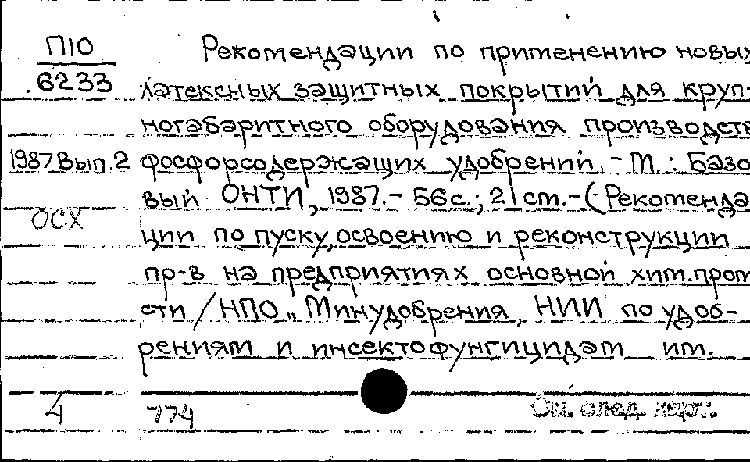 П10
6233
1987 Вып.2
ОСХ
Рекомендации по применению новых
латексных защитных покрытий для круп-
ногабаритного оборудования производств
фосфорсодержащих удобрений. - М.: Базо-
вый ОНТИ, 1987.- 56 с.; 21 см.-(Рекоменда
ции по пуску, освоению и реконструкции
пр-в на предприятиях основной хим.пром
сти / НПО „Минудобрения, НИИ по удоб-
рениям и инсектофунгицидам им.
4
774
См. след. карт.